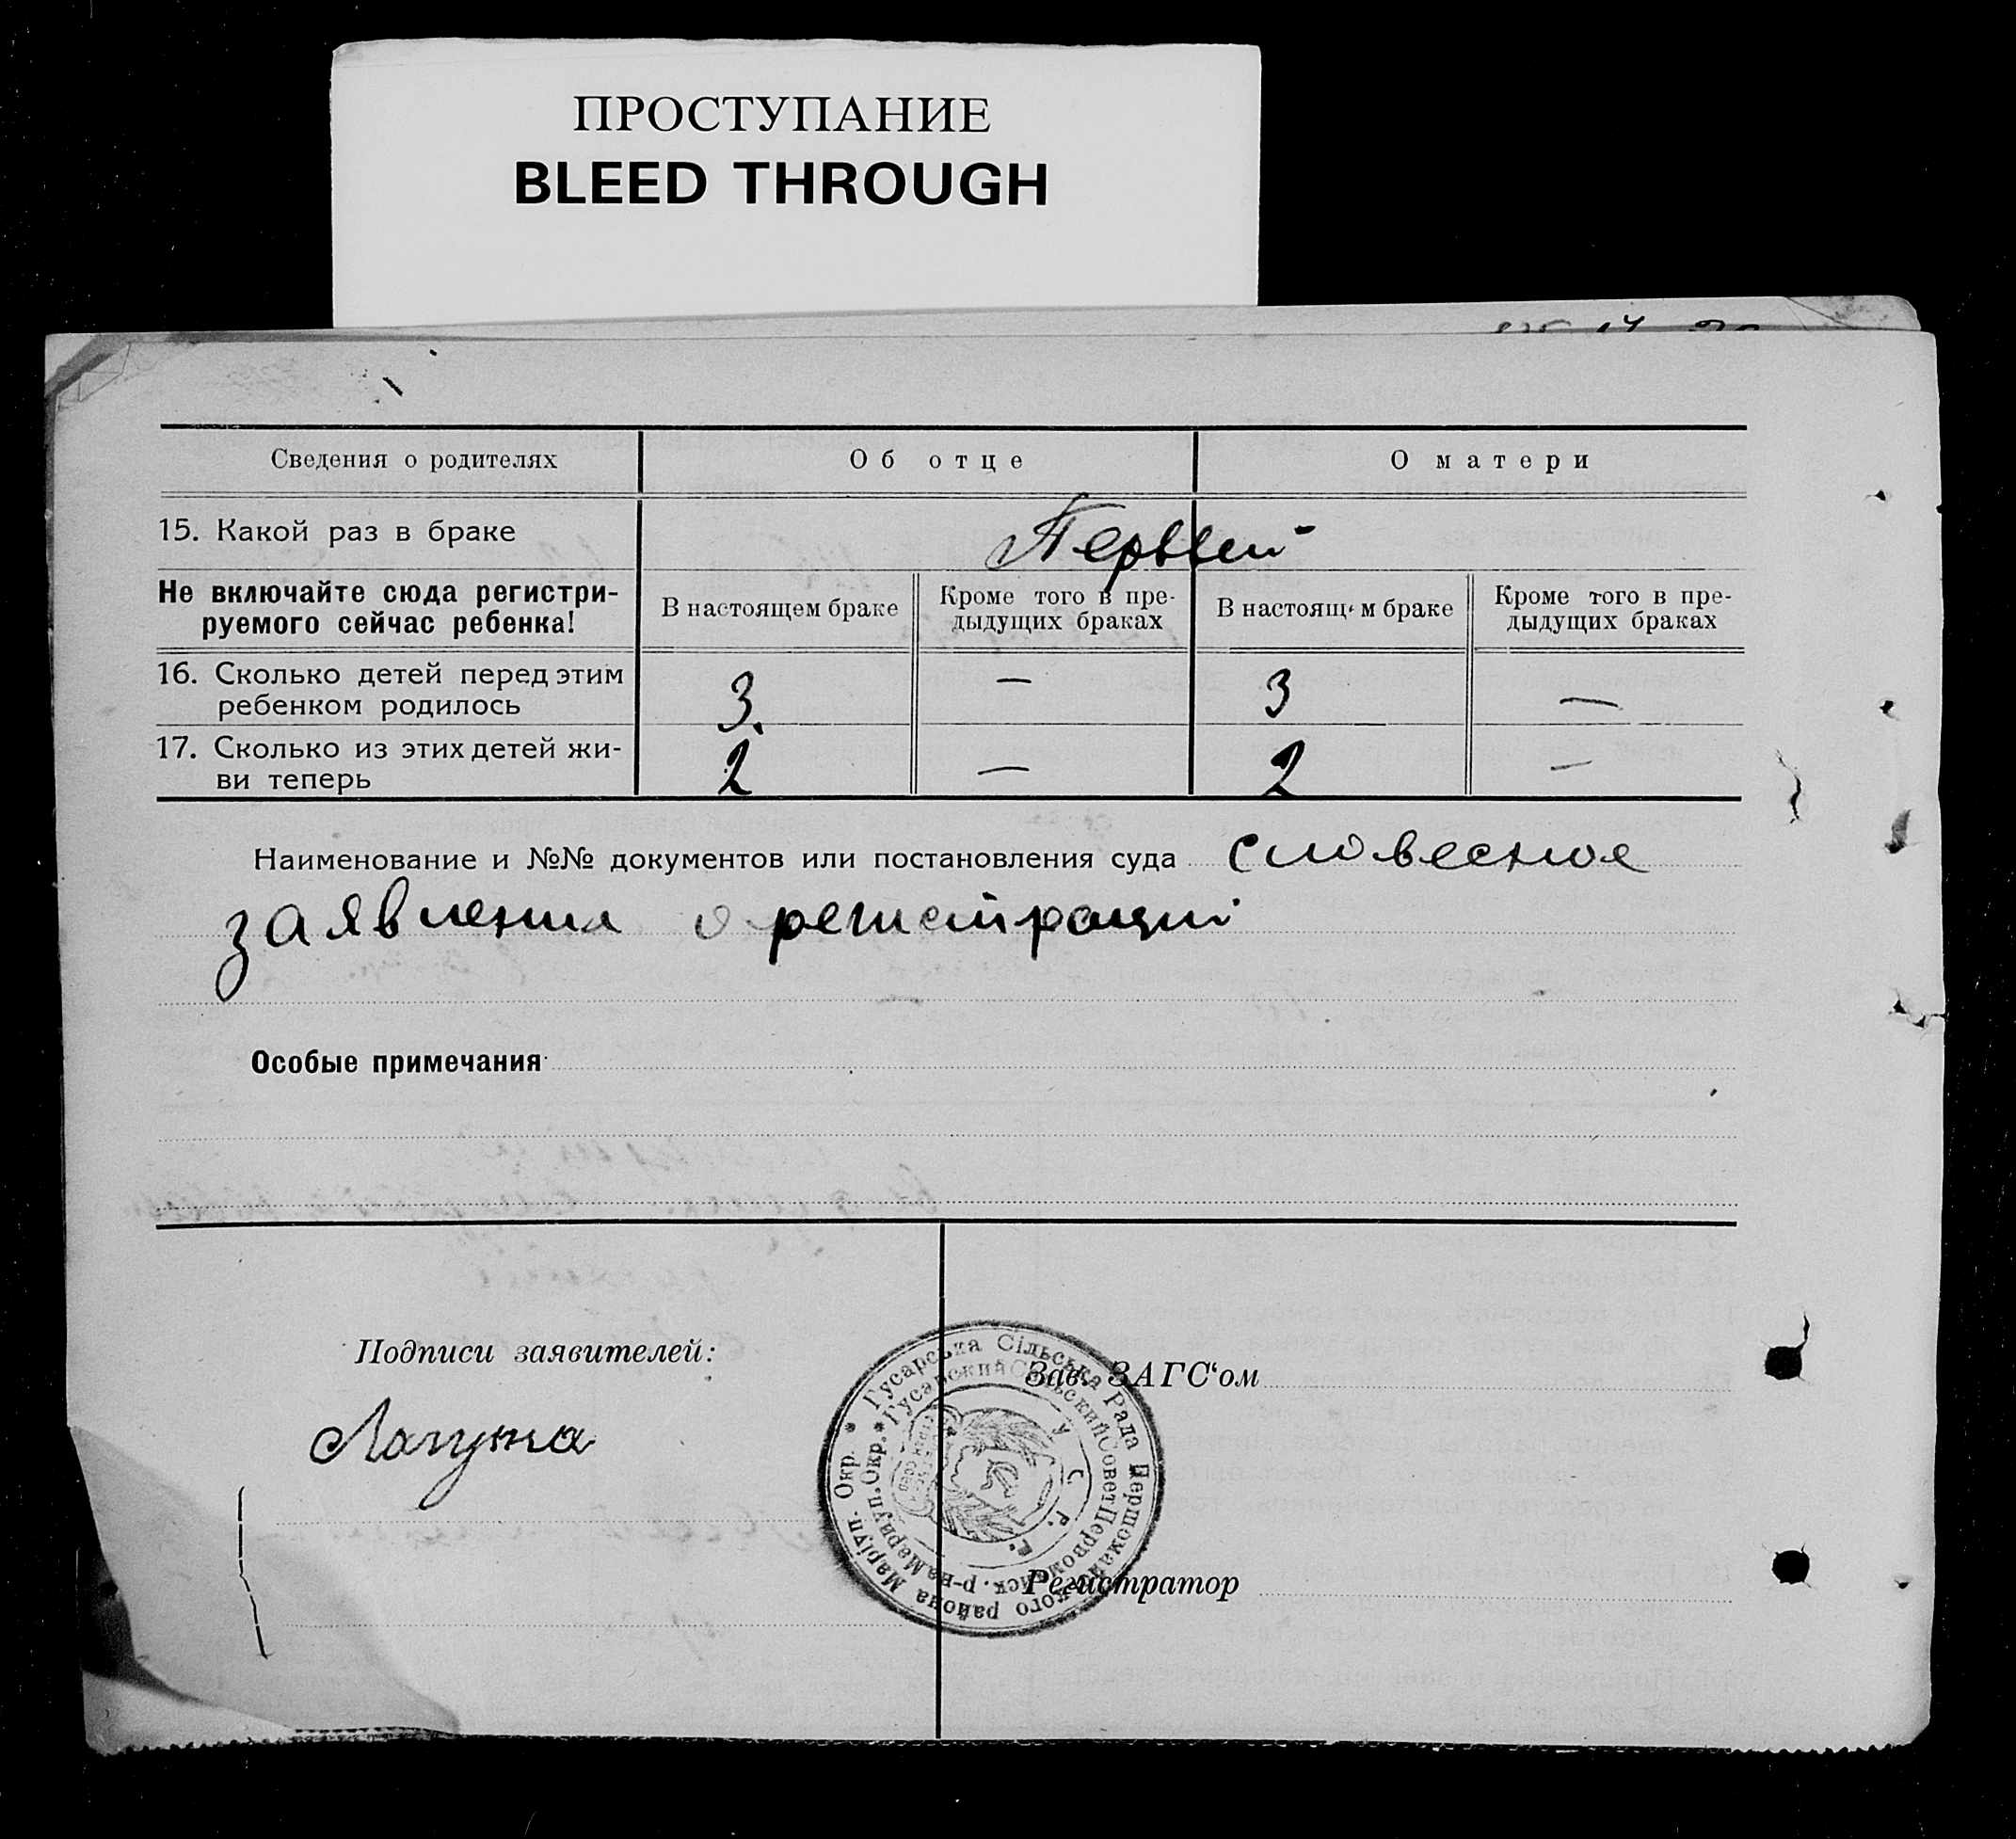 ПРОСТУПАНИЕ
BLEED THROUGH
Сведения о родителях
Об отце
О матери
15. Какой раз в браке
Первый
Не включайте сюда регистри-
руемого сейчас ребенка!
В настоящем браке
Кроме того в пре-
дыдущих браках
В настоящ м браке
Кроме того в пре-
дыдущих браках
16. Сколько детей перед этим
ребенком родилось
3.
—
3
—
17. Сколько из этих детей жи-
ви теперь
2
—
2
—
Наименование и №№ документов или постановления суда словесное
заявления о регистраций
Особые примечания
Подписи заявителей:
Лагуна
Зав. ЗАГС“ом
Регистратор
* Гусарська Сільська Рада Першомайського района Маріуп. Окр.
* Гусарский Сельский Совет Первомайск. р-на Мариуп. Окр.
У. С. Р. Р.